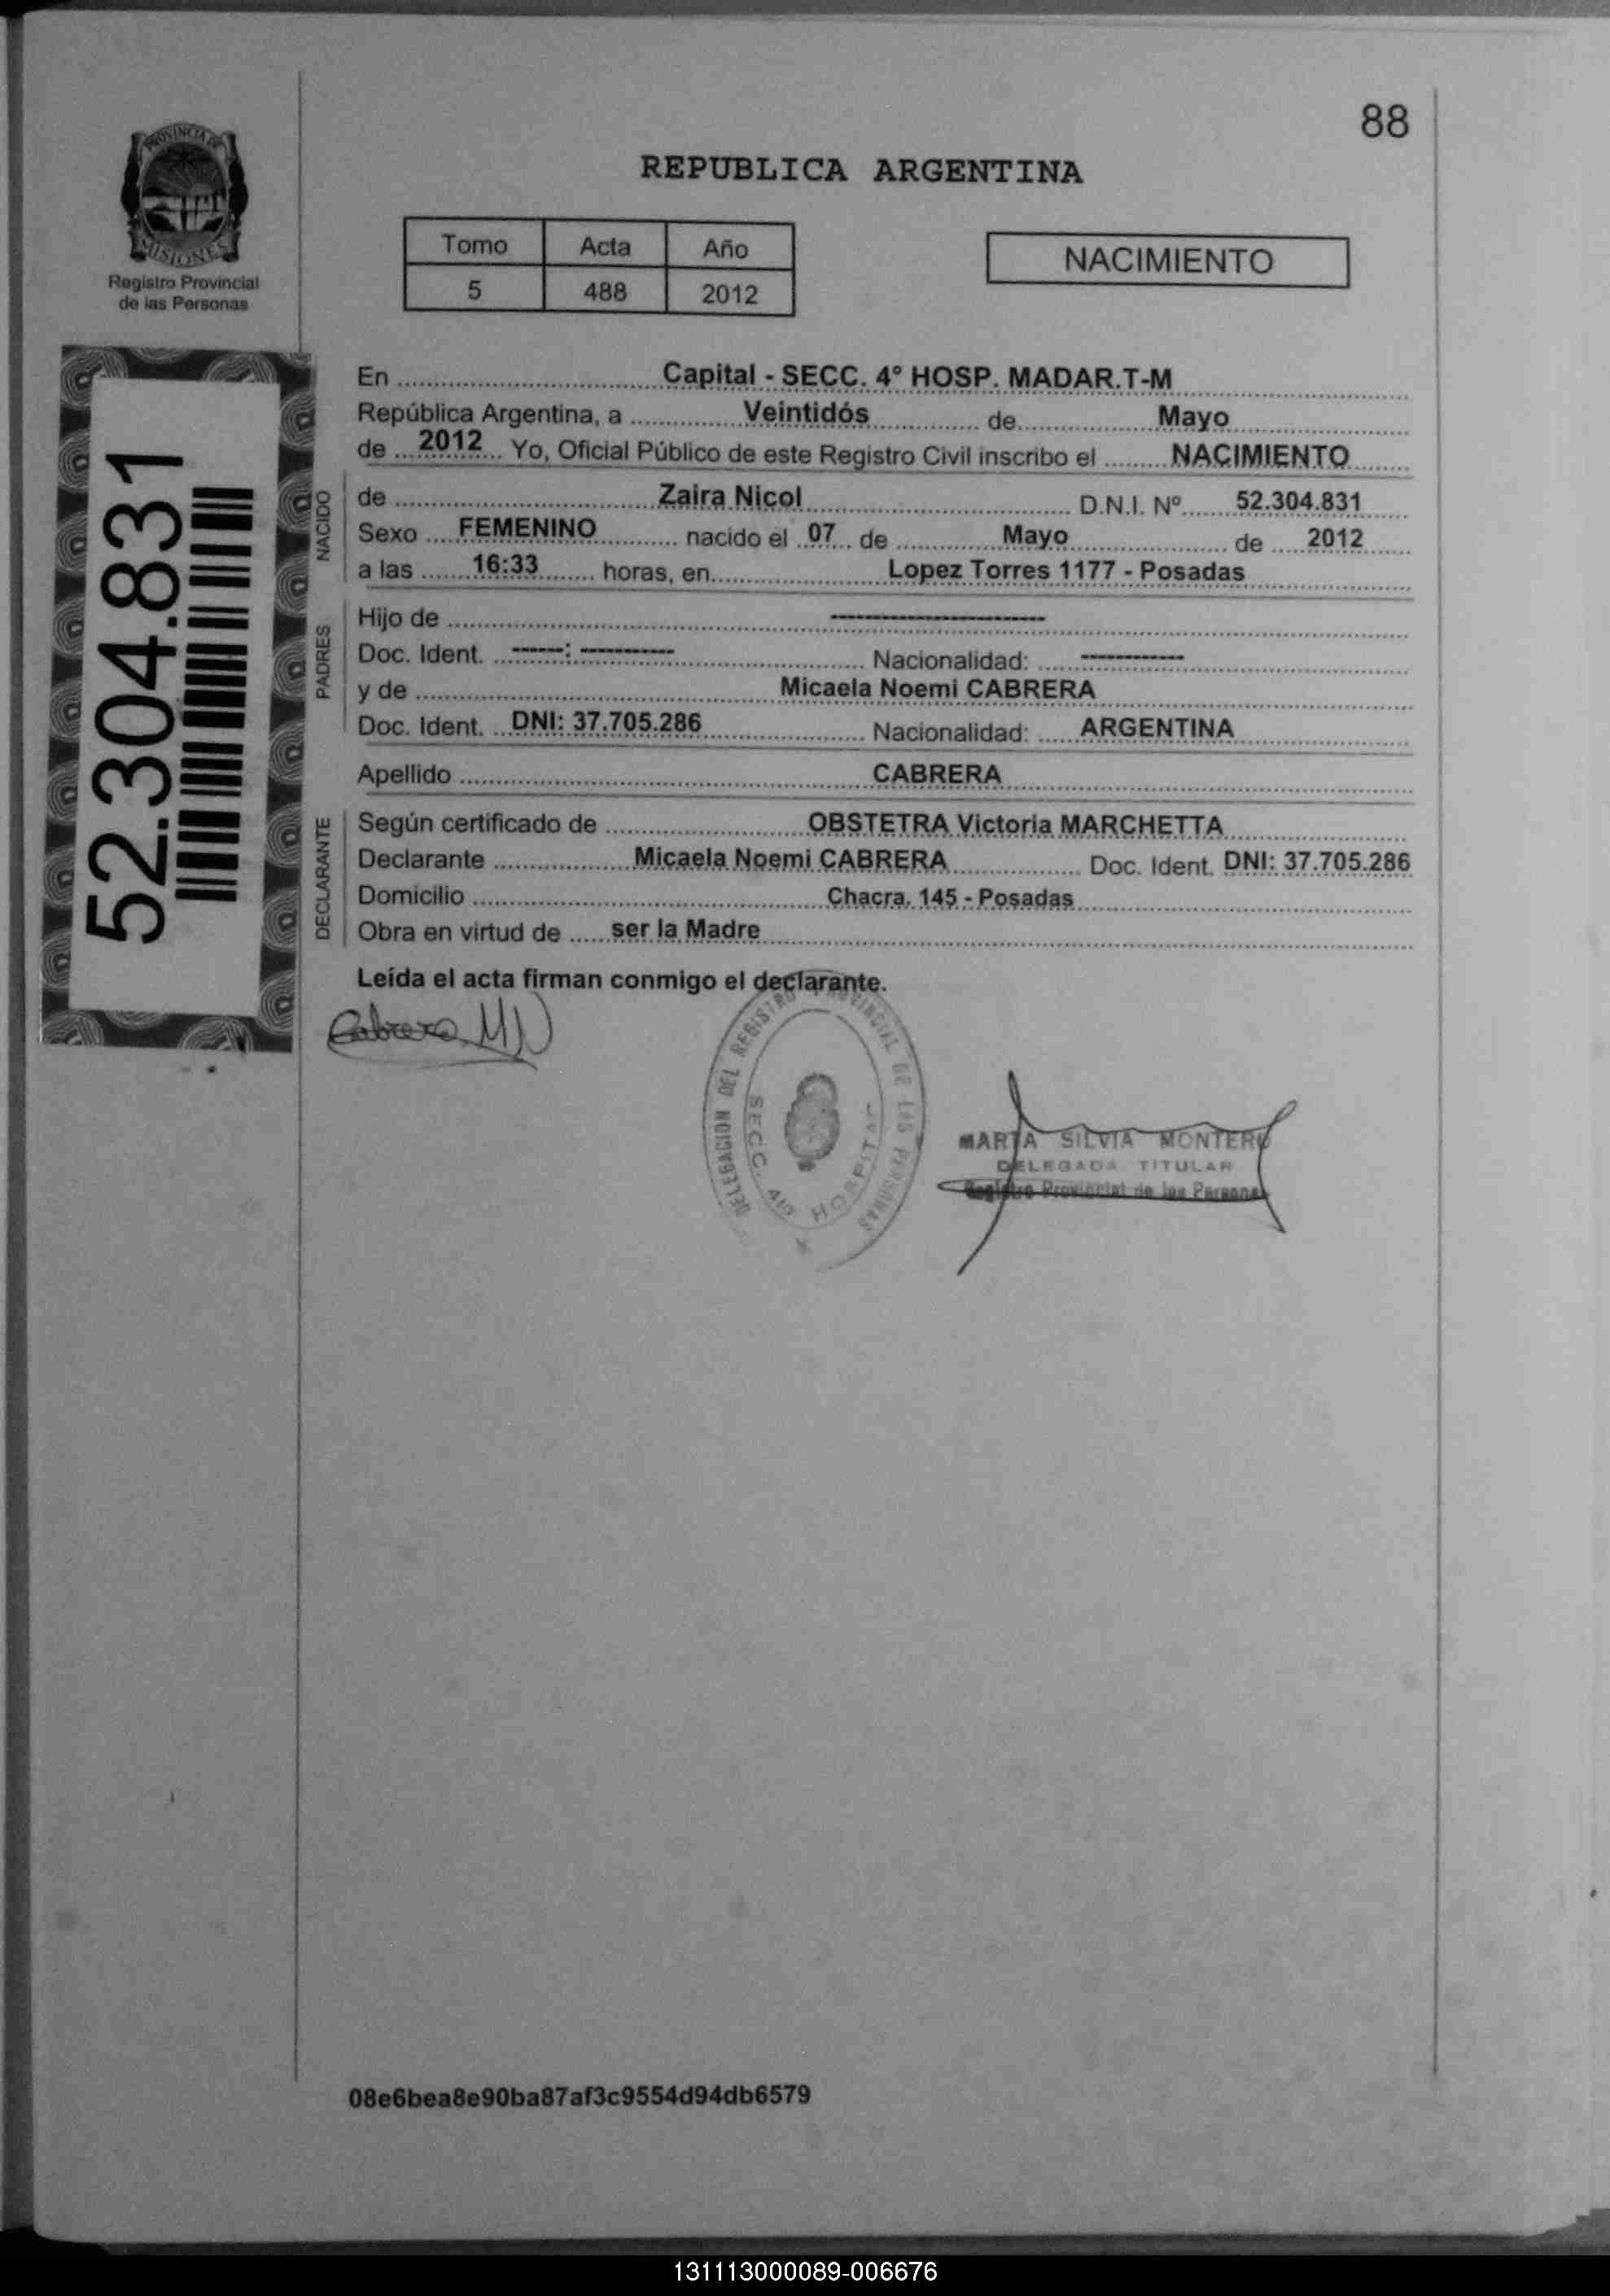 88
PROVINCIA DE
MISIONES
Registro Provincial
de las Personas
REPUBLICA ARGENTINA
Tomo Acta Año
5 488 2012
NACIMIENTO
52.304.831
En Capital - SECC. 4° HOSP. MADAR.T-M
República Argentina, a Veintidós de Mayo
de 2012 Yo, Oficial Público de este Registro Civil inscribo el NACIMIENTO
NACIDO
de Zaira Nicol D.N.I. Nº 52.304.831
Sexo FEMENINO nacido el 07 de Mayo de 2012
a las 16:33 horas, en Lopez Torres 1177 - Posadas
PADRES
Hijo de --------------------
Doc. Ident. -----: ---------- Nacionalidad: ------------
y de Micaela Noemi CABRERA
Doc. Ident. DNI: 37.705.286 Nacionalidad: ARGENTINA
Apellido CABRERA
DECLARANTE
Según certificado de OBSTETRA Victoria MARCHETTA
Declarante Micaela Noemi CABRERA Doc. Ident. DNI: 37.705.286
Domicilio Chacra. 145 - Posadas
Obra en virtud de ser la Madre
Leída el acta firman conmigo el declarante.
Cabrera MN
DELEGACION DEL REGISTRO PROVINCIAL DE LAS PERSONAS
SECC. 4ta HOSPITAL
MARTA SILVIA MONTERO
DELEGADA TITULAR
Registro Provincial de las Personas
08e6bea8e90ba87af3c9554d94db6579
131113000089-006676